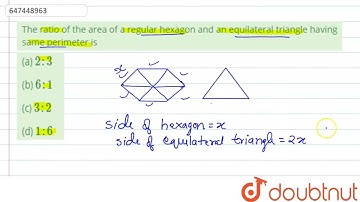 647448963
The ratio of the area of a regular hexagon and an equilateral triangle having
same perimeter is
(a) 2:3
(b) 6:1
(c) 3:2
(d) 1:6
x
side of hexagon = x
side of equilateral triangle = 2x
doubtnut